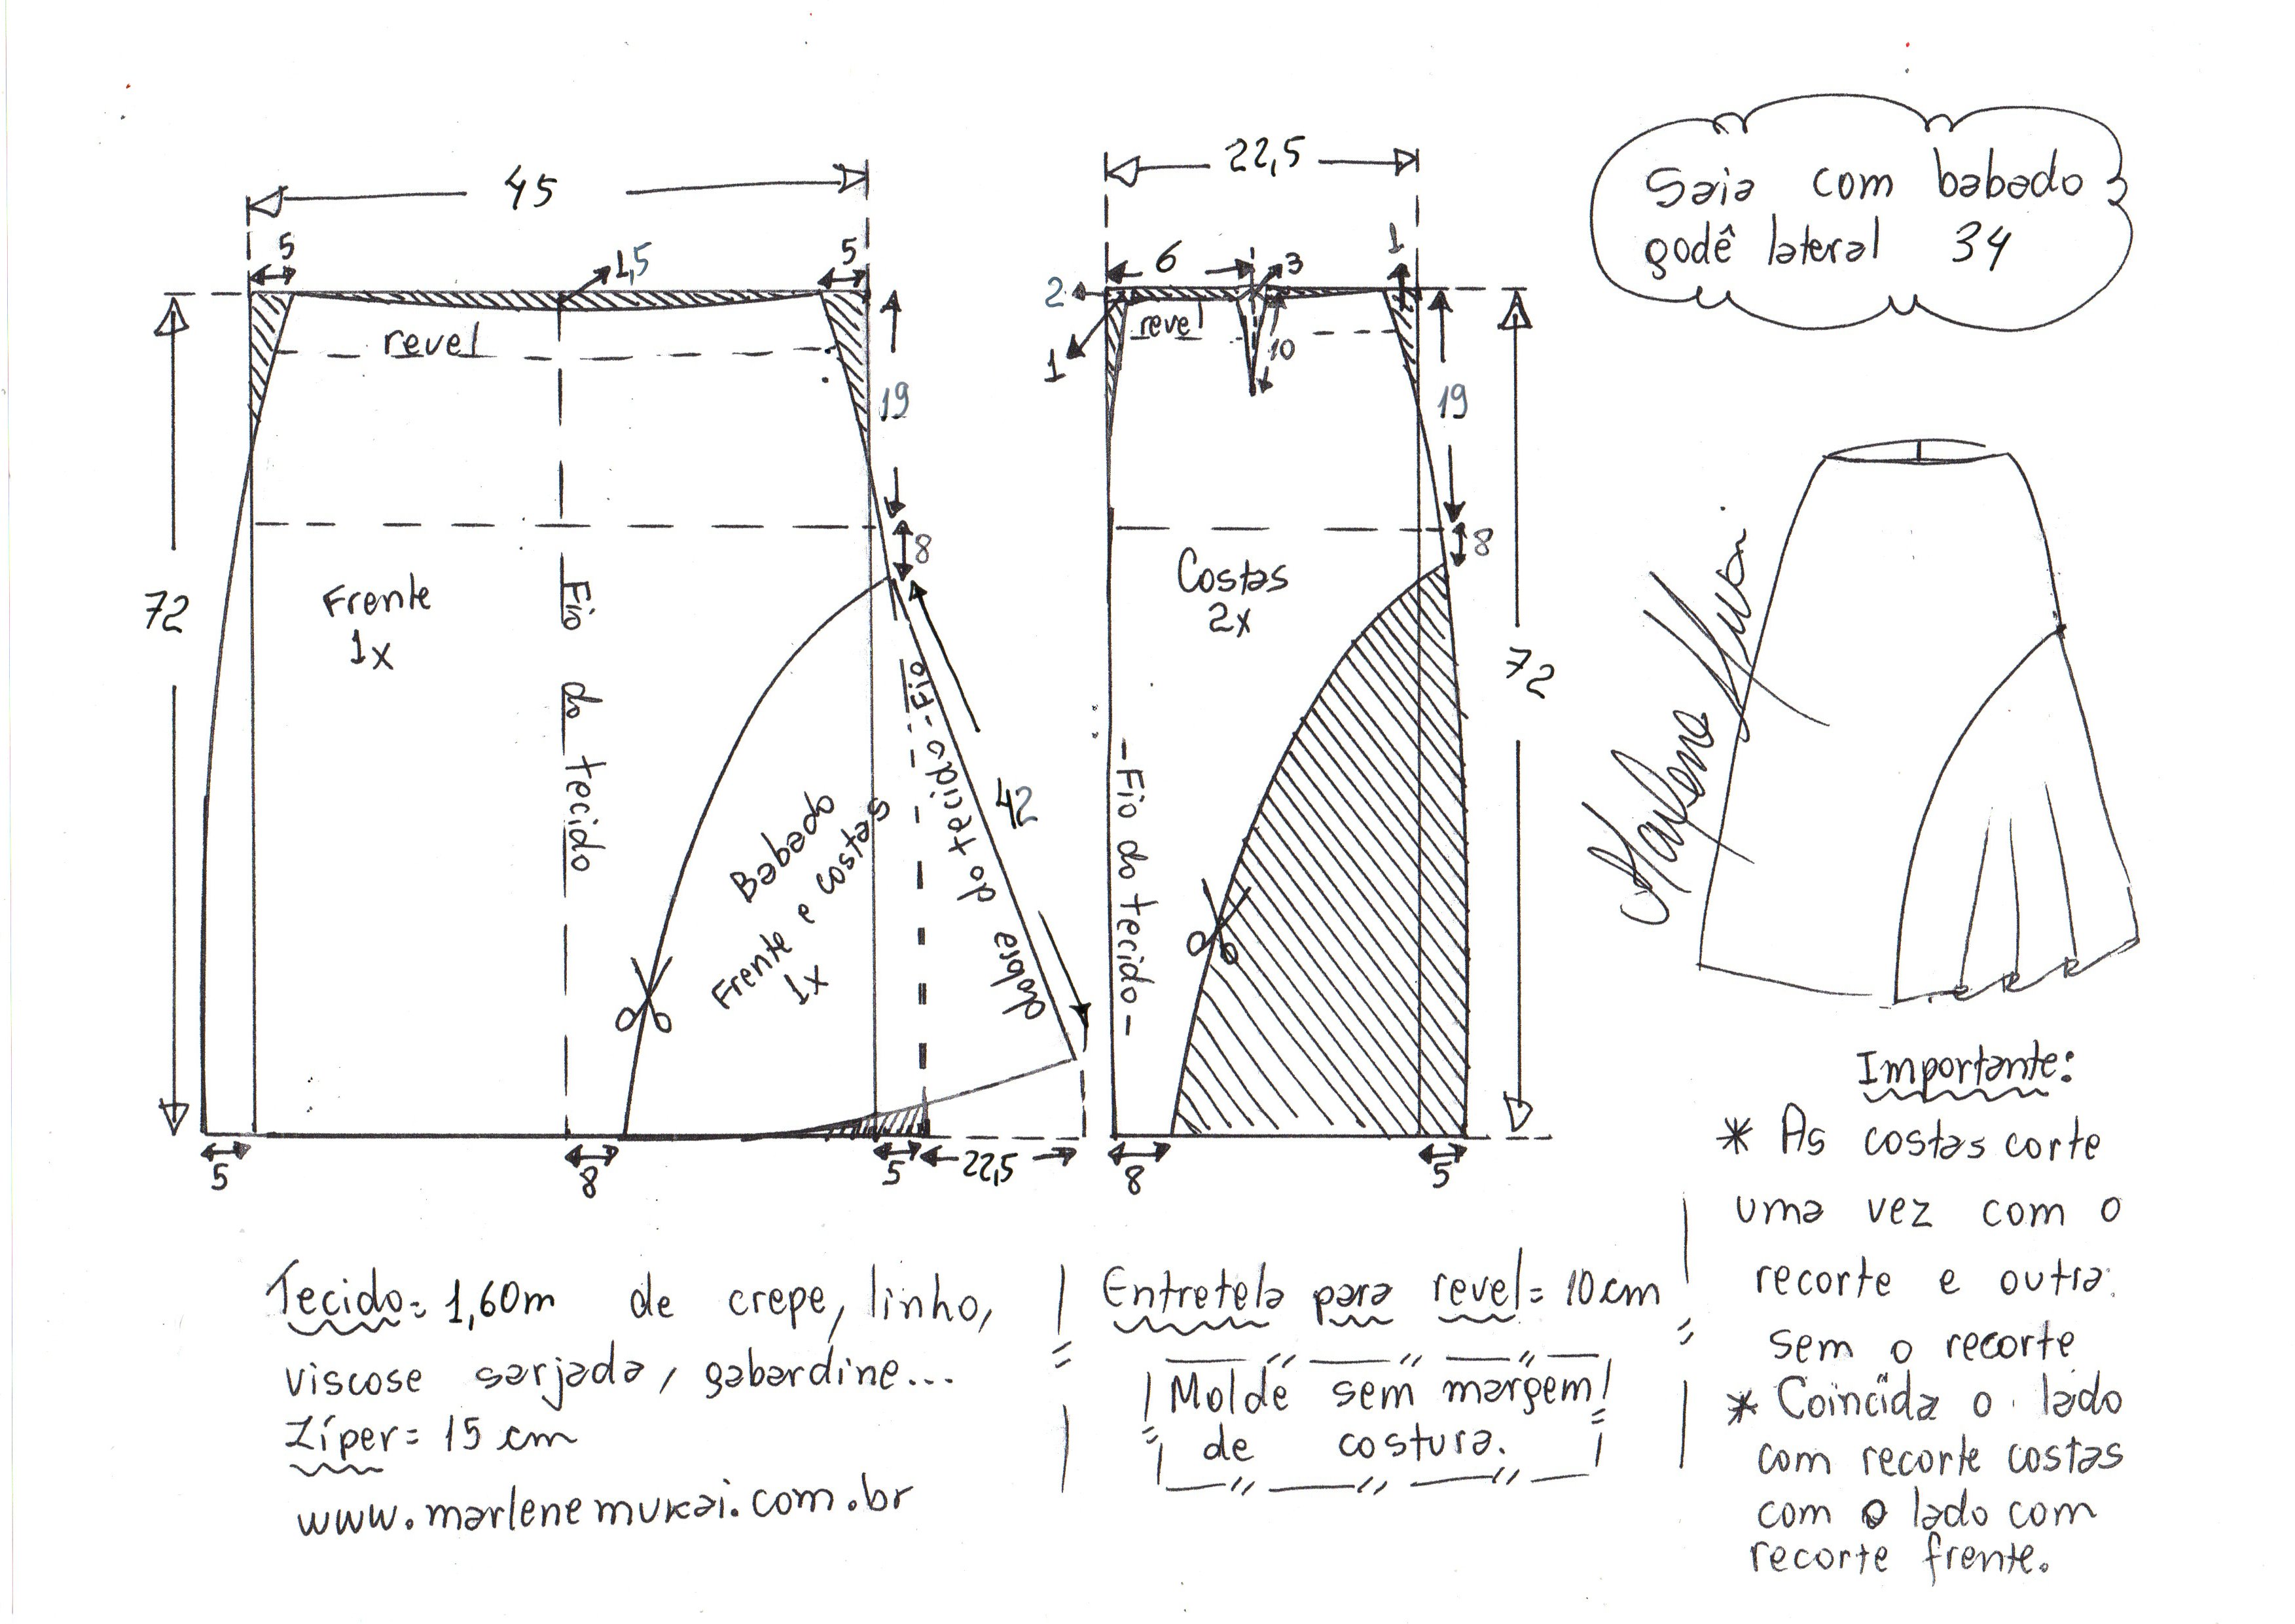 45
5
1,5
5
revel
19
8
72
Frente
1x
Fio do tecido
Fio do tecido
dobre
42
Babado
Frente e costas
1x
5
8
5
22,5
22,5
6
3
1
2
1
revel
10
19
8
Costas
2x
72
Fio do tecido
8
5
Saia com babado
godê lateral 34
Marlene Mukai
Tecido= 1,60m de crepe, linho,
viscose sarjada, gabardine...
Zíper= 15 cm
www.marlenemukai.com.br
Entretela para revel= 10cm
Molde sem margem
de costura.
Importante:
* As costas corte
uma vez com o
recorte e outra
sem o recorte
* Coincida o lado
com recorte costas
com o lado com
recorte frente.